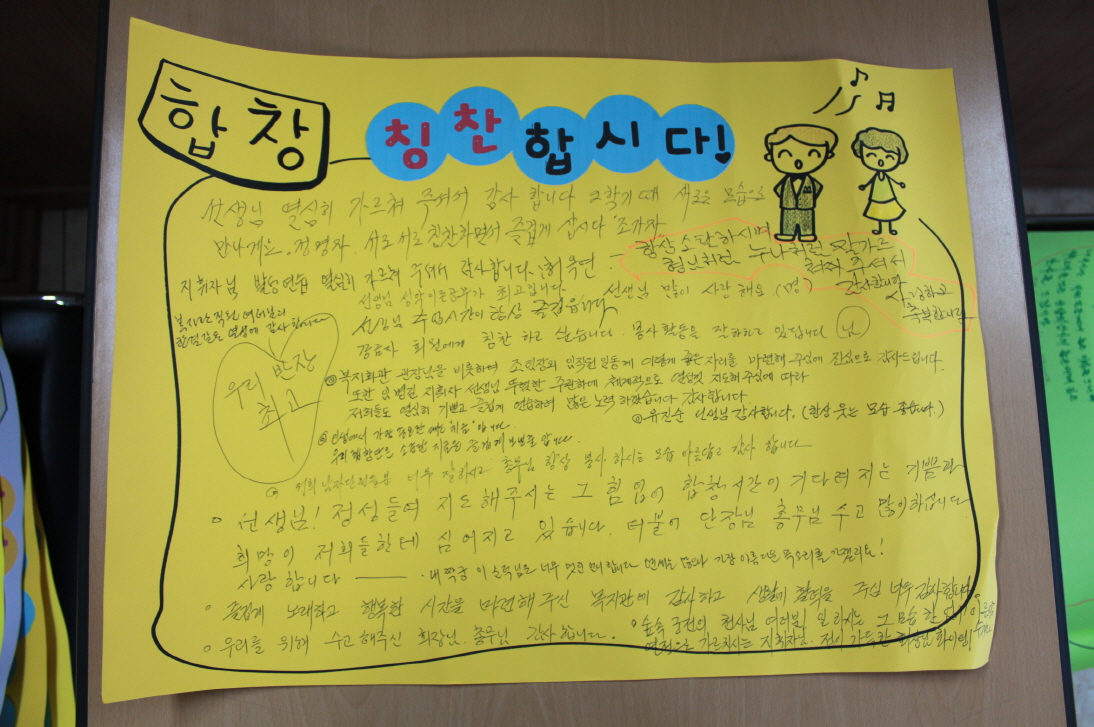 합창
칭찬합시다!
선생님 열심히 가르쳐 주셔서 감사 합니다 2학기때 새로운 모습으로
만나게요. 정영자. 서로서로 칭찬하면서 즐겁게 삽시다 조까자
항상 소탈하시며
형님처럼 누나처럼 잘 가르
쳐줘 주셔서
감사합니다
사랑하고
축복합니다
지휘자님 발성연습 열심히 가르쳐 주셔서 감사합니다. 허옥연.
선생님 최고입니다. 선생님 많이 사랑해요
선생님 수업시간이 항상 즐겁습니다
회원에게 칭찬 하고 싶습니다. 봉사활동을 잘하하고 있답니다 님
복지관 직원 여러분의
한결같은 열성에 감사합니다
우리 반장
최고
복지회관 관장님을 비롯하여 조 임직원 일동께 이렇게 좋은 자리를 마련해 주심에 진심으로 감사드립니다.
또한 지휘자 선생님 뚜렷한 주관하에 체계적으로 열심히 지도해 주심에 따라
저희들도 열심히 기쁘고 즐겁게 연습하여 많은 노력 하겠습니다 감사합니다
유진순 선생님 감사합니다. (항상 웃는 모습 좋습니다.)
인생에서 가장 중요한 때는 지금 입니다.
우리 합창반은 소중한 지금을 즐겁게 보냅니다.
저희 너무 잘하시고 총무님 항상 봉사 하시는 모습 아름답고 감사 합니다
선생님! 정성들여 지도해주시는 그 힘 합창시간이 기다려 지는 기쁨과
희망이 저희들한테 심어지고 있습니다. 더불어 단장님 총무님 수고 많이하십니다
사랑 합니다 — 내짝궁 이 너무 멋진 가장 아름다운 목소리를 가졌지요!
즐겁게 노래하고 행복한 시간을 마련해 주신 복지관에 감사하고 활력을 주심 너무 감사합니다.
우리를 위해 수고해주신 회장님. 총무님 감사 합니다.
숲속 궁전의 천사님 여러분, 일 하시는 그 모습
열정으로 가르치시는 지휘자님. 가득한 회장님 화이팅!